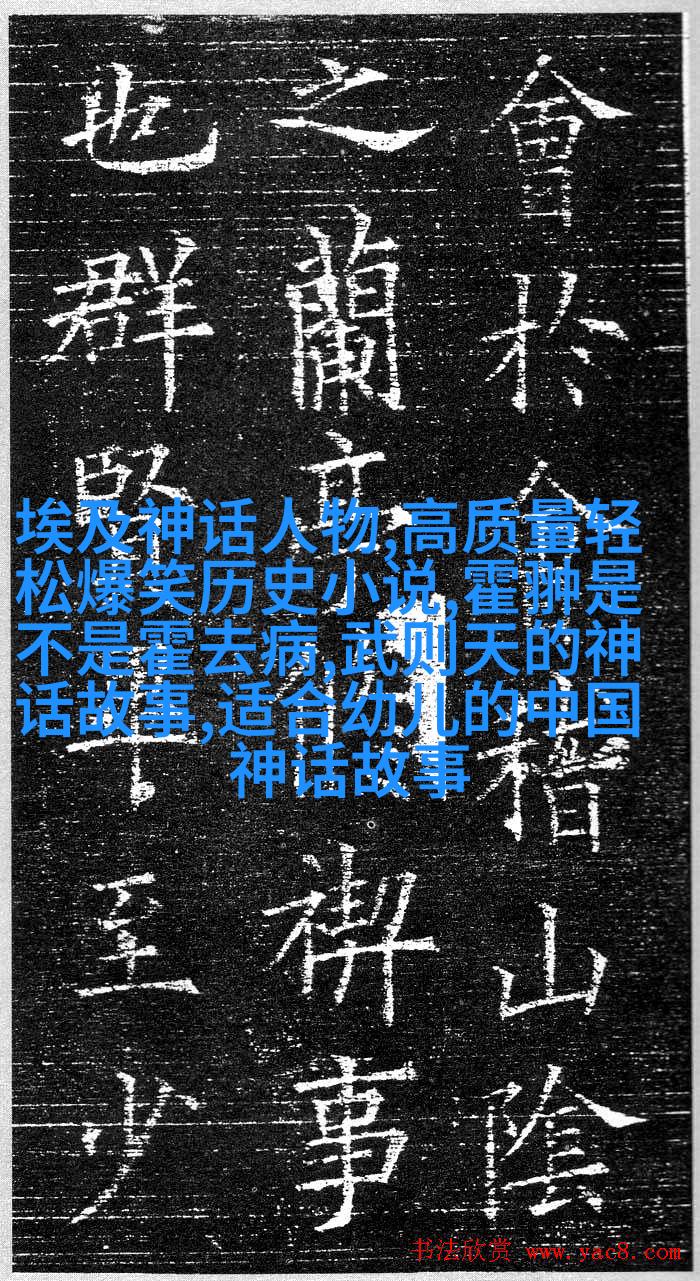 會於會稽山陰
之蘭亭禊事
也群賢畢至少
埃及神话人物,高质量轻
松爆笑历史小说,霍翀是
不是霍去病,武则天的神
话故事,适合幼儿的中国
神话故事
书法欣赏 www.yac8.com